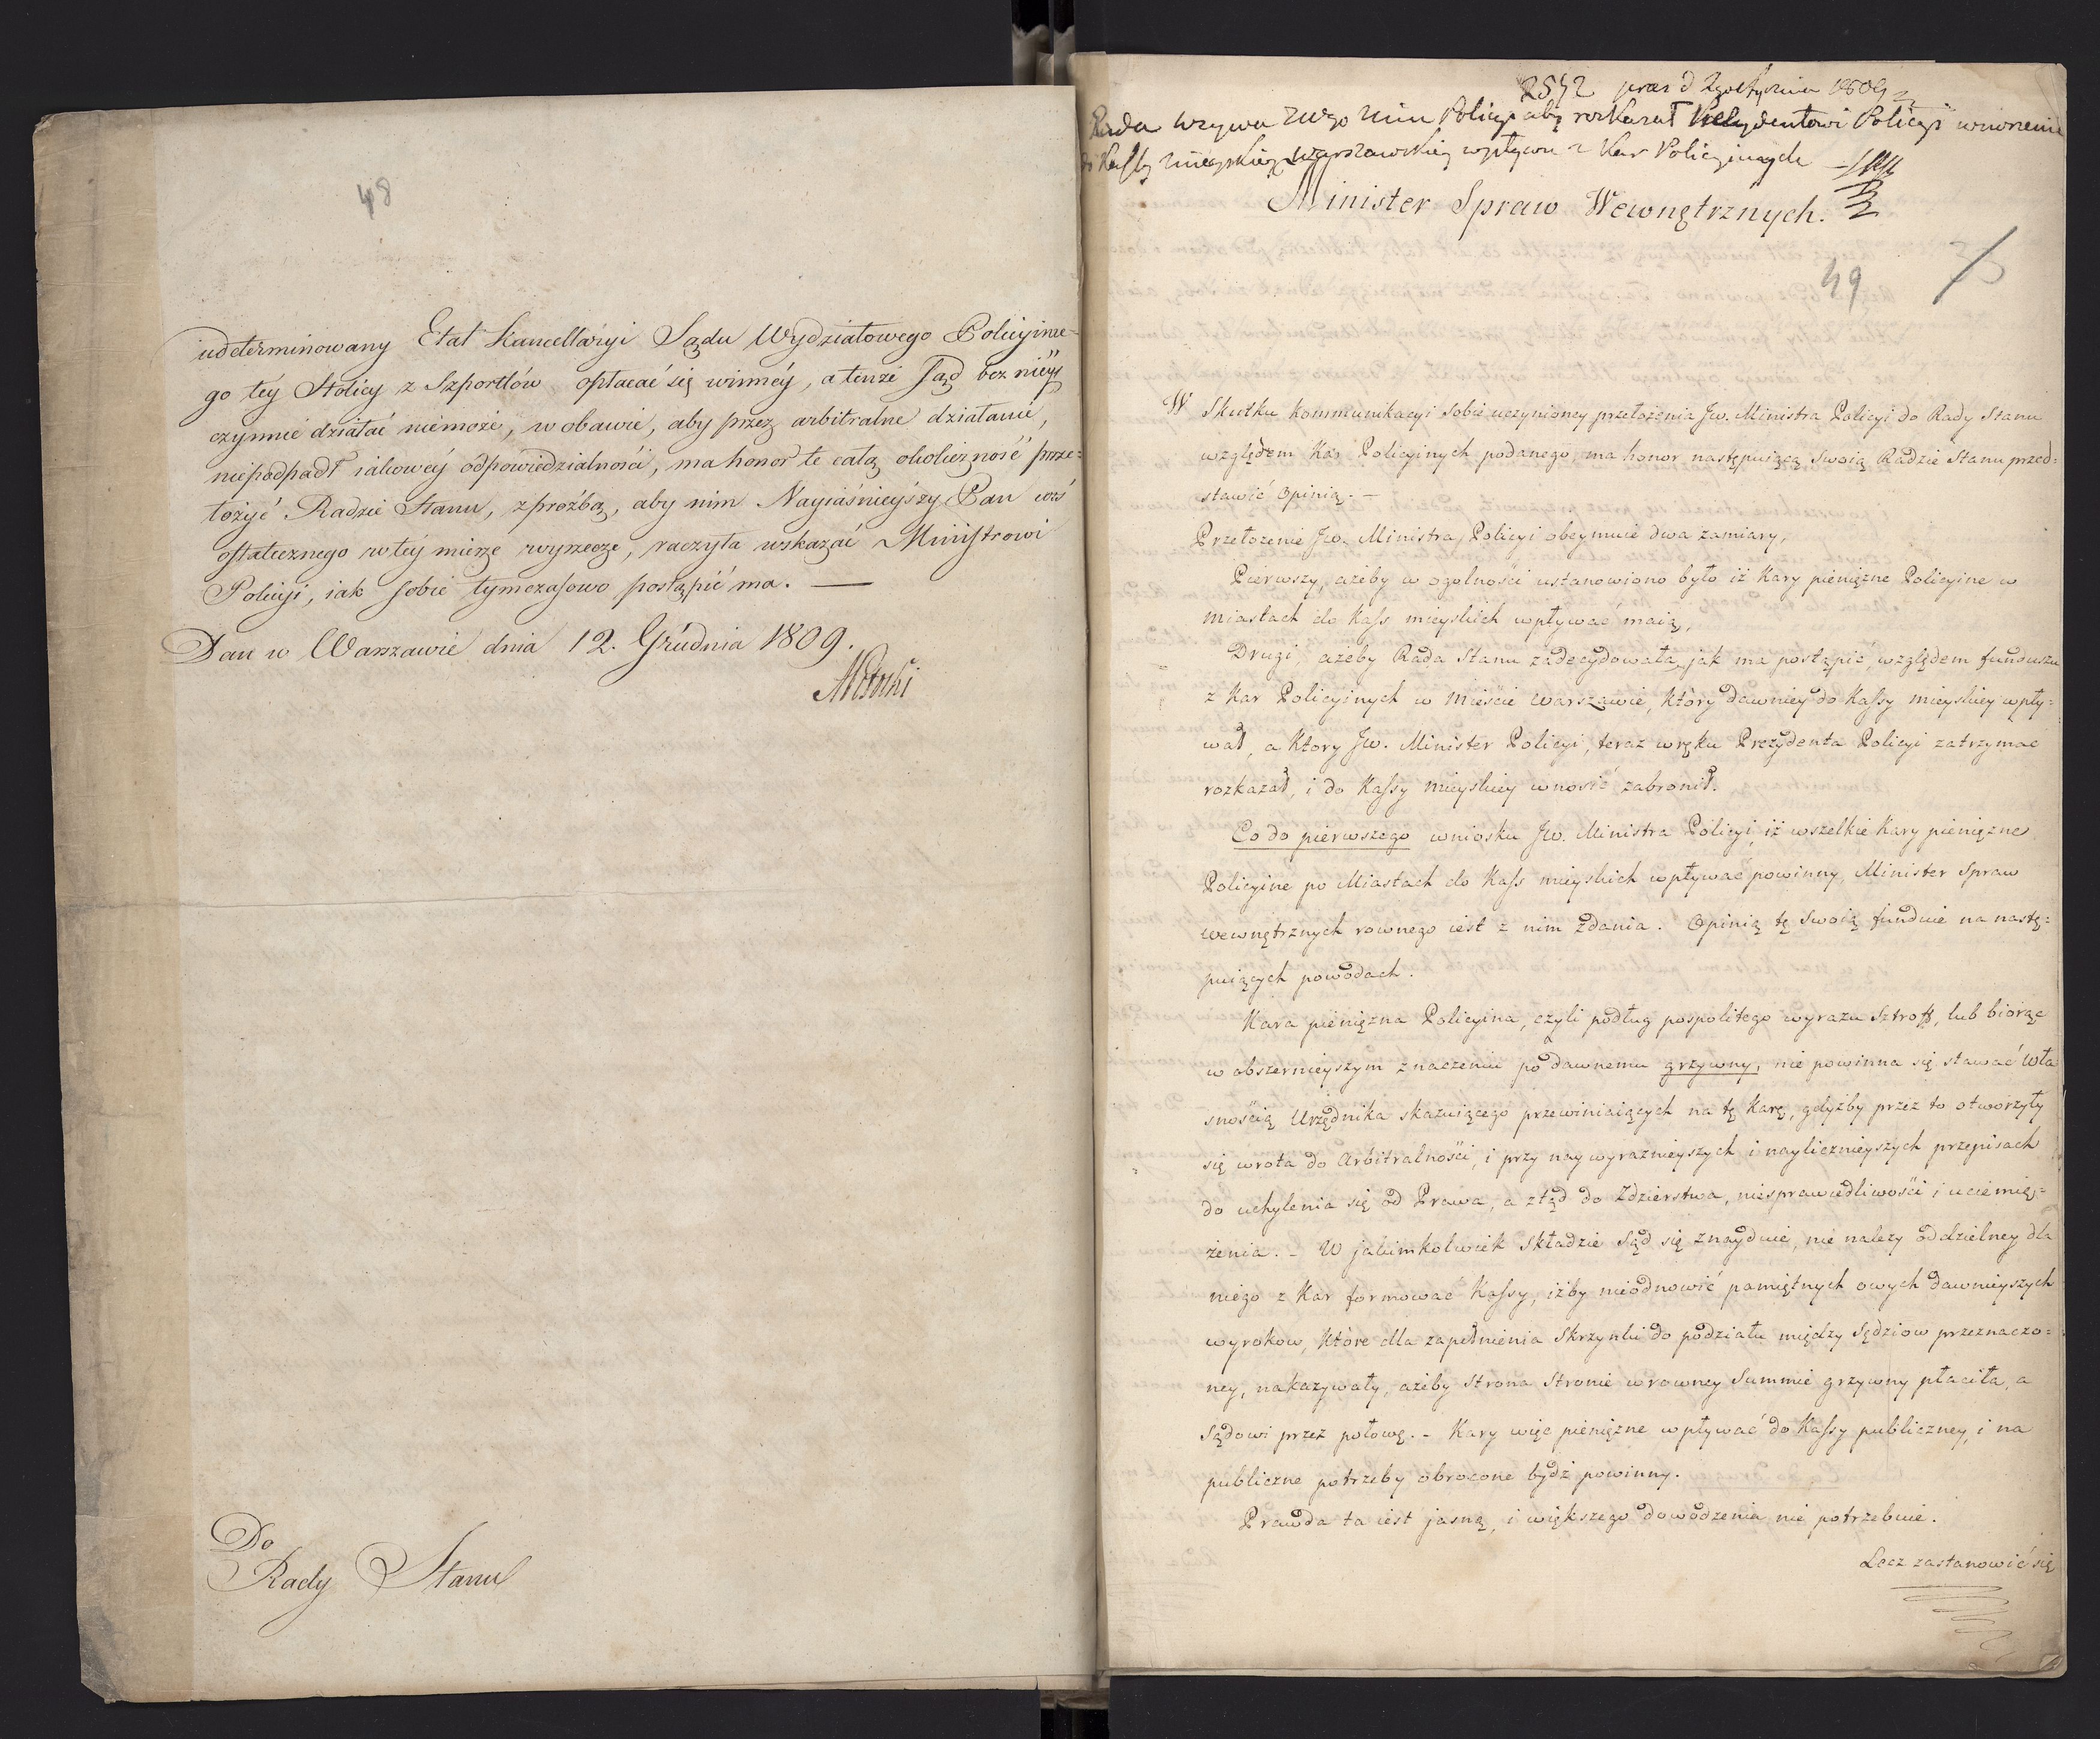 48
udeterminowany Etat Kancellaryi Sądu Wydziałowego Policyine-
go tey Stolicy z Szportlów opłacać się winney, a tenże Sąd bez niey
czynnie działać niemoże, w obawie, aby przez arbitralne działanie,
niepodpadł iakowey odpowiedzialności, ma honor te całą okoliczność prze=
łożyć Radzie Stanu, z proźbą, aby nim Nayiaśnieyszy Pan coś
ostatecznego w tey mierze wyrzecze, raczyła wskazać Ministrowi
Policyi, iak sobie tymczasowo postąpić ma. —
Dan w Warszawie dnia 12. Grudnia 1809.
APotocki
Do
Rady Stanu
2542 1809
Rada wzywa Policyi aby rozkazał Prezydentowi Policyi wnoszenie
do Kassy mieyskiey warszawskiey wpływu z Kar Policyinych
Minister Spraw Wewnętrznych.
49
W Skutku kommunikacyi sobie uczynioney przełożenia Jw. Ministra Policyi do Rady Stanu
względem Kar Policyinych podanego, ma honor następuiącą swoią Radzie Stanu przed=
stawić opinią. —
Przełożenie Jw. Ministra Policyi obeymuie dwa zamiary,
Pierwszy, ażeby w ogolności ustanowiono było iż Kary pieniężne Policyine w
miastach do Kass mieyskich wpływać maią,
Drugi, ażeby Rada Stanu zadecydowała, jak ma postąpić, względem funduszu
z Kar Policyinych w mieście Warszawie, który dawniey do Kassy mieyskiey wpły=
wał, a ktory Jw. Minister Policyi, teraz w ręku Prezydenta Policyi zatrzymać
rozkazał, i do Kassy mieyskiey wnosić zabronił.
Co do pierwszego wniosku Jw. Ministra Policyi, iż wszelkie Kary pieniężne
Policyine po Miastach do Kass mieyskich wpływać powinny, Minister Spraw
wewnętrznych rownego iest z nim zdania. Opinią tę swoią funduie na nastę=
puiących powodach.
Kara pieniężna Policyina, czyli podług pospolitego wyrazu Sztroff, lub biorąc
w obszernieyszym znaczeniu po dawnemu grzywny, nie powinna się stawać wła
snością Urzędnika skazuiącego przewiniaiących na tę Karę, gdyżby przez to otworzyły
się wrota do arbitralności, i przy naywyraznieyszych i nayliczniejszych przepisach
do uchylenia się od Prawa, a ztąd do Zdzierstwa, niesprawiedliwości i uciemię=
żenia. - W jakimkolwiek składzie Sąd się znayduie, nie należy oddzielney dla
niego z Kar formować Kassy, iżby nieodnowić pamiętnych owych dawnieyszych
wyrokow, które dla zapełnienia Skrzynki do podziału między Sędziow przeznaczo=
ney, nakazywały, ażeby Strona Stronie w rowney Summie grzywny płaciła, a
Sądowi przez połowę. - Kary więc pieniężne wpływać do Kassy publiczney, i na
publiczne potrzeby obrocone bydź powinny.
Prawda ta iest jasną, i większego dowodzenia nie potrzebuie.
Lecz zastanowić się